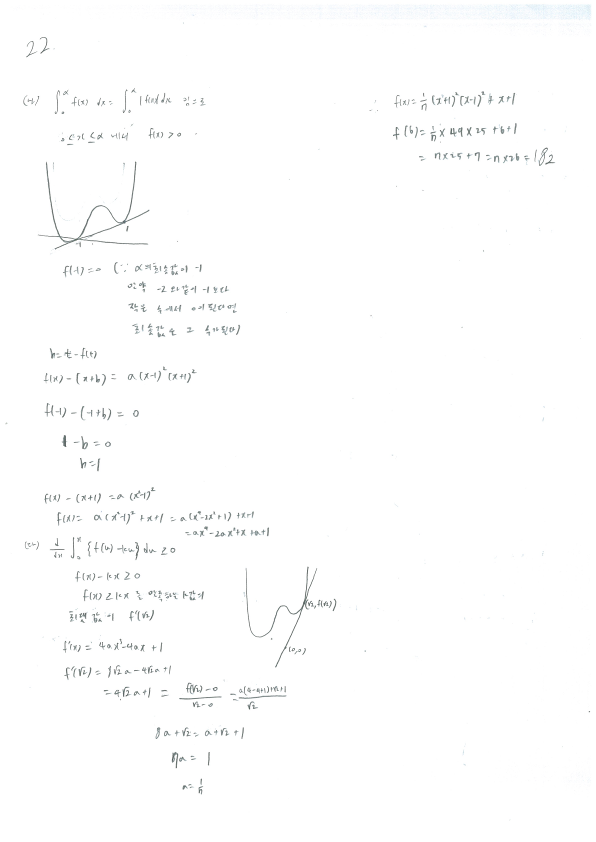 22.
(나) ∫₀^α f(x) dx = ∫₀^α |f(x)| dx 임으로
0≤x≤α 에서 f(x)>0.
-1
1
f(-1)=0 (∵ α의 최솟값이 -1
만약 -2와 같이 -1보다
작은 수에서 0이 된다면
최솟값은 그 수가 된다)
b=t-f(t)
f(x)-(x+b) = a(x-1)²(x+1)²
f(-1)-(-1+b) = 0
1-b=0
b=1
f(x)-(x+1) = a(x²-1)²
f(x) = a(x²-1)²+x+1 = a(x⁴-2x²+1)+x+1
= ax⁴-2ax²+x+a+1
(다) d/dx ∫₀^x {f(u)-ku} du ≥ 0
f(x)-kx≥0
f(x)≥kx 를 만족하는 k값의
최댓값이 f'(√2)
(√2, f(√2))
(0,0)
f'(x) = 4ax³-4ax+1
f'(√2) = 8√2a-4√2a+1
= 4√2a+1 = (f(√2)-0)/(√2-0) = (a(4-4+1)+√2+1)/√2
8a+√2 = a+√2+1
7a = 1
a = 1/7
∴ f(x) = 1/7 (x+1)²(x-1)² + x+1
f(6) = 1/7 × 49 × 25 + 6+1
= 7×25+7 = 7×26 = 182